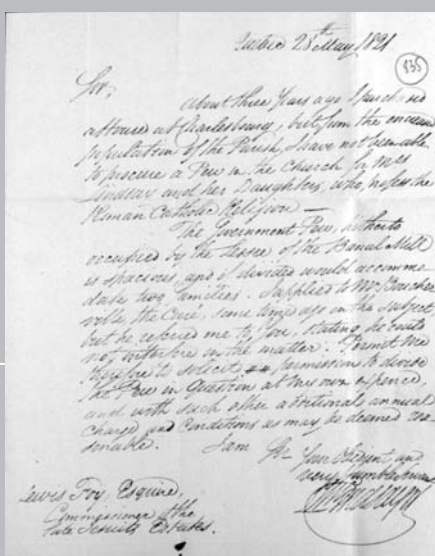 Quebec 28th May 1821
835
Sir,
About three Years ago I purchased
a House at Charlesbourg, but from the encreased
population of the Parish, I have not been able
to procure a Pew in the Church for Mrs
Lindsay and her Daughters, who profess the
Roman Catholic Religion —
The Government Pew, hitherto
occupied by the Lessee of the Banal Mill
is spacious, and if divided would accommo
date two families. I applied to Mr Boucher
ville the Curé, some time ago on the subject,
but he refered me to you, stating he could
not interfere in the matter. Permit me
therefore to solicit permission to divide
the Pew in Question at my own expence,
and with such other additional annual
charge and conditions as may be deemed rea
sonable. I am Sir Your Obedient and
very humble Servant
Lindsay
Lewis Foy, Esquire,
Commissioner of the
late Jesuits Estates.